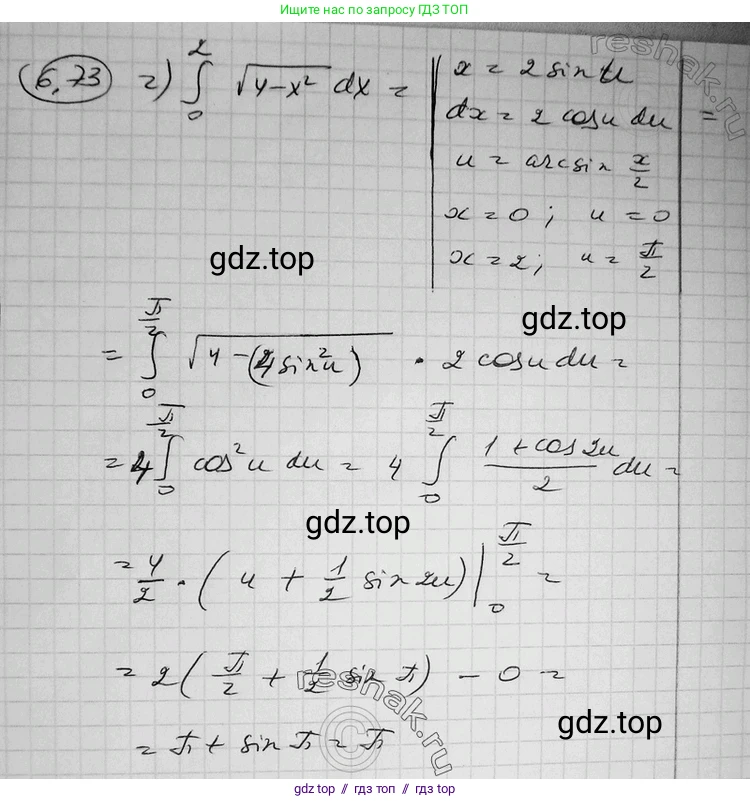 Ищите нас по запросу ГДЗ ТОП
6.73 г) ∫₀² √(4-x²) dx = | x = 2 sin u
dx = 2 cosu du | =
u = arcsin x/2
x = 0; u = 0
x = 2; u = π/2
gdz.top
gdz.top
= ∫₀^(π/2) √(4-(4sin²u)) · 2 cosu du =
= 4 ∫₀^(π/2) cos²u du = 4 ∫₀^(π/2) (1+cos2u)/2 du =
gdz.top
= 4/2 · (u + 1/2 sin2u) |₀^(π/2) =
= 2(π/2 + 1/2 sin π) - 0 =
reshak.ru
reshak.ru
©
gdz.top
= π + sin π = π
gdz.top // гдз топ // гдз.top